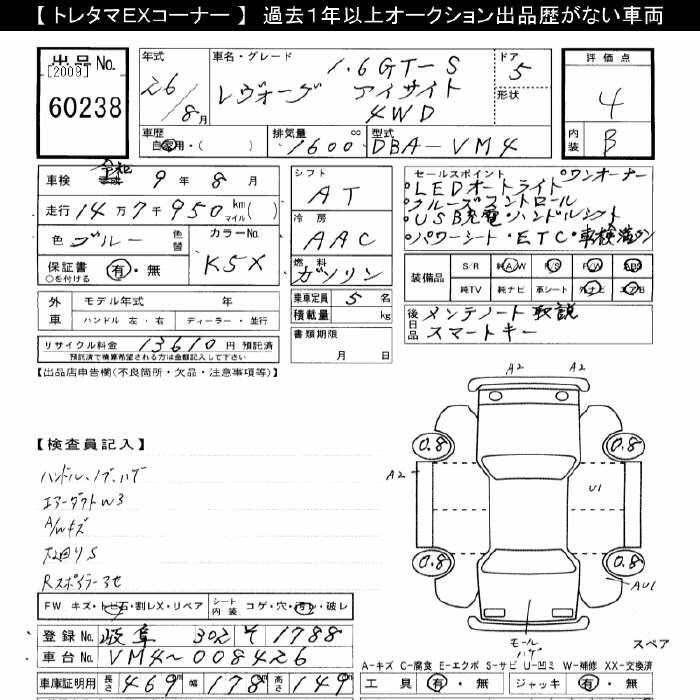 【 トレタマEXコーナー 】 過去1年以上オークション出品歴がない車両
出品 No.
[2009]
60238
年式
26/8月
車名・グレード
1.6GT-S
レヴォーグ アイサイト
4WD
ドア
5
形状
評価点
4
内装
B
車歴
自家用・( )
排気量
1600 cc
型式
DBA-VM4
車検 令和 9 年 8 月
走行 14万7千950 km マイル( )
色 ブルー 色替
カラーNo.
K5X
保証書 有・無
○を付ける
シフト
AT
冷房
AAC
燃料
ガソリン
乗車定員 5 名
積載量 kg
書類期限
月 日
セールスポイント °ワンオーナー
°LEDオートライト
°クルーズコントロール
°USB充電・ハンドルシフト
°パワーシート・ETC・車検満タン
装備品 S/R 純A/W P/S P/W ABS
純TV 純ナビ 革シート 外ナビ エアB
外車 モデル年式 年
ハンドル 左・右 ディーラー・並行
リサイクル料金 13610 円 預託済
預託済で積算希望される方は金額記入して下さい
後日品 メンテノート 取説
スマートキー
【出品店申告欄(不良箇所・欠品・注意事項等)】
【検査員記入】
ハンドル、ノブ、ハゲ
エアーダクトW3
A/Wキズ
Rスポイラー3セ
A2 A2
0.8 0.8
A2
U1
0.8 0.8
AU1
モール
ハゲ
FW キズ・トビ石・割レX・リペア
シート内装 コゲ・穴・汚レ・破レ
登録 No. 岐阜 302 そ 1788
車台 No. VM4~008426
車庫証明用 長さ 469m 幅 178m 高さ 149m
スペア
A-キズ C-腐食 E-エクボ S-サビ U-凹ミ W-補修 XX-交換済
工具 有・無 ジャッキ 有・無